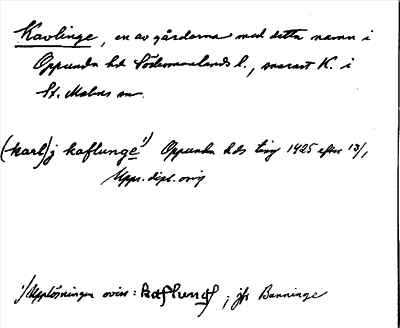 Kavlinge, en av gårdarna med detta namn i
Oppunda hd Södermanlands l., snarast K. i
St. Malms sn.
(karl) j kaflunge 1) Oppunda hds ting 1425 efter 13/1
Upps. dipl. orig
1) Upplösningen oviss: kaflungᶠ ; jfr Banninge